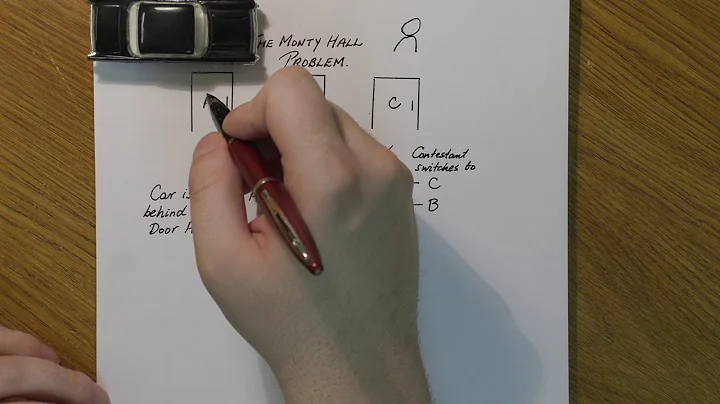 THE MONTY HALL
PROBLEM.
C
Contestant
switches to
Car is
C
behind
B
Door